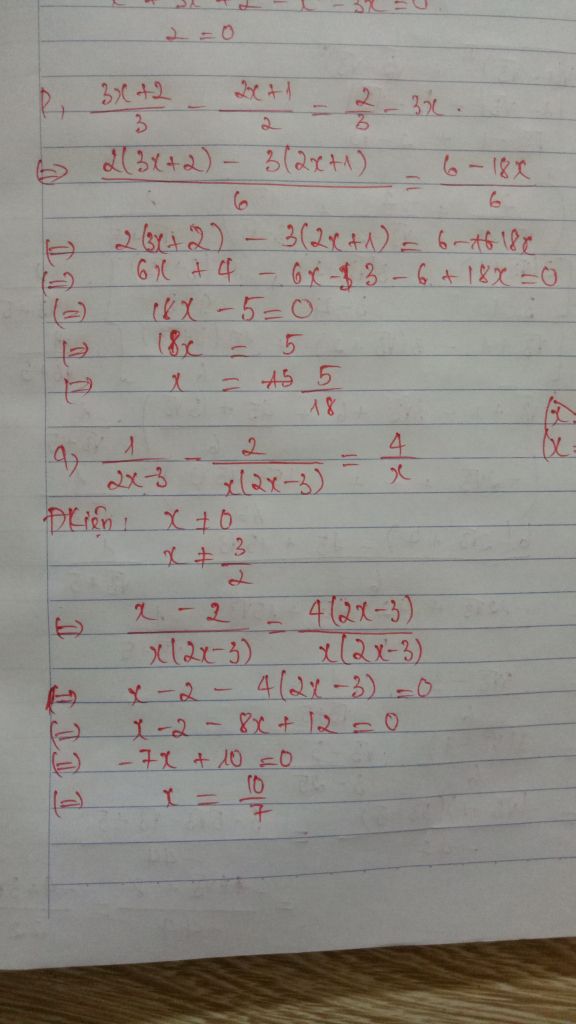 2 = 0
P, (3x+2)/3 - (2x+1)/2 = 2/3 - 3x.
(=) (2(3x+2) - 3(2x+1))/6 = (6 - 18x)/6
(=) 2(3x+2) - 3(2x+1) = 6 - 18x
(=) 6x + 4 - 6x - 3 - 6 + 18x = 0
(=) 18x - 5 = 0
(=) 18x = 5
(=) x = 5/18
q) 1/(2x-3) - 2/(x(2x-3)) = 4/x
ĐKiện: x ≠ 0
x ≠ 3/2
(=) (x - 2)/(x(2x-3)) = 4(2x-3)/(x(2x-3))
(=) x - 2 - 4(2x-3) = 0
(=) x - 2 - 8x + 12 = 0
(=) -7x + 10 = 0
(=) x = 10/7